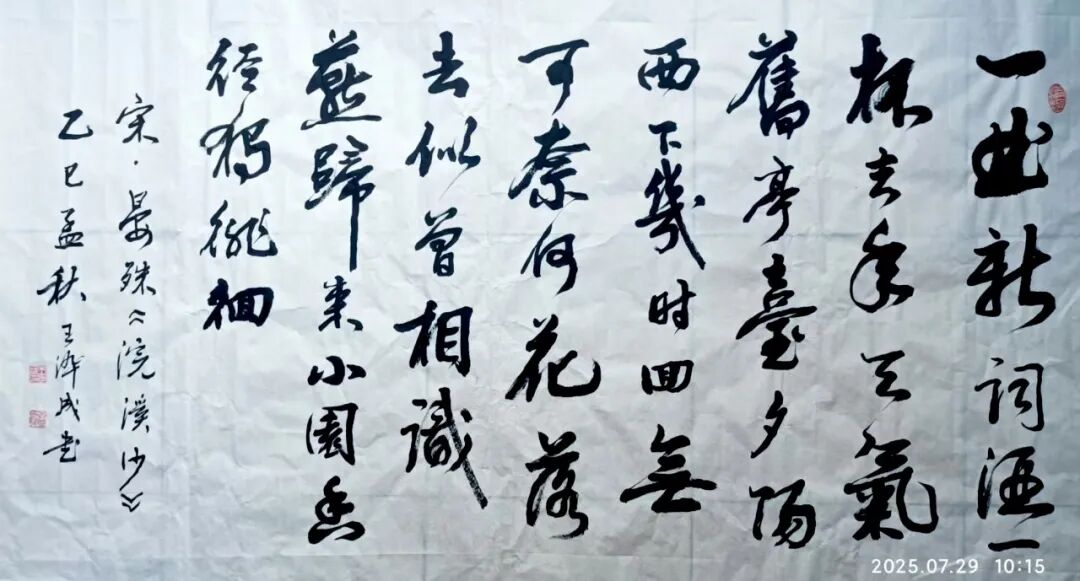 一曲新詞酒一
杯去年天氣
舊亭臺夕陽
西下幾时回無
可奈何花落
去似曾相識
燕歸来小園香
径獨徘徊
宋·晏殊《浣溪沙》
乙巳孟秋王泽成书
2025.07.29 10:15